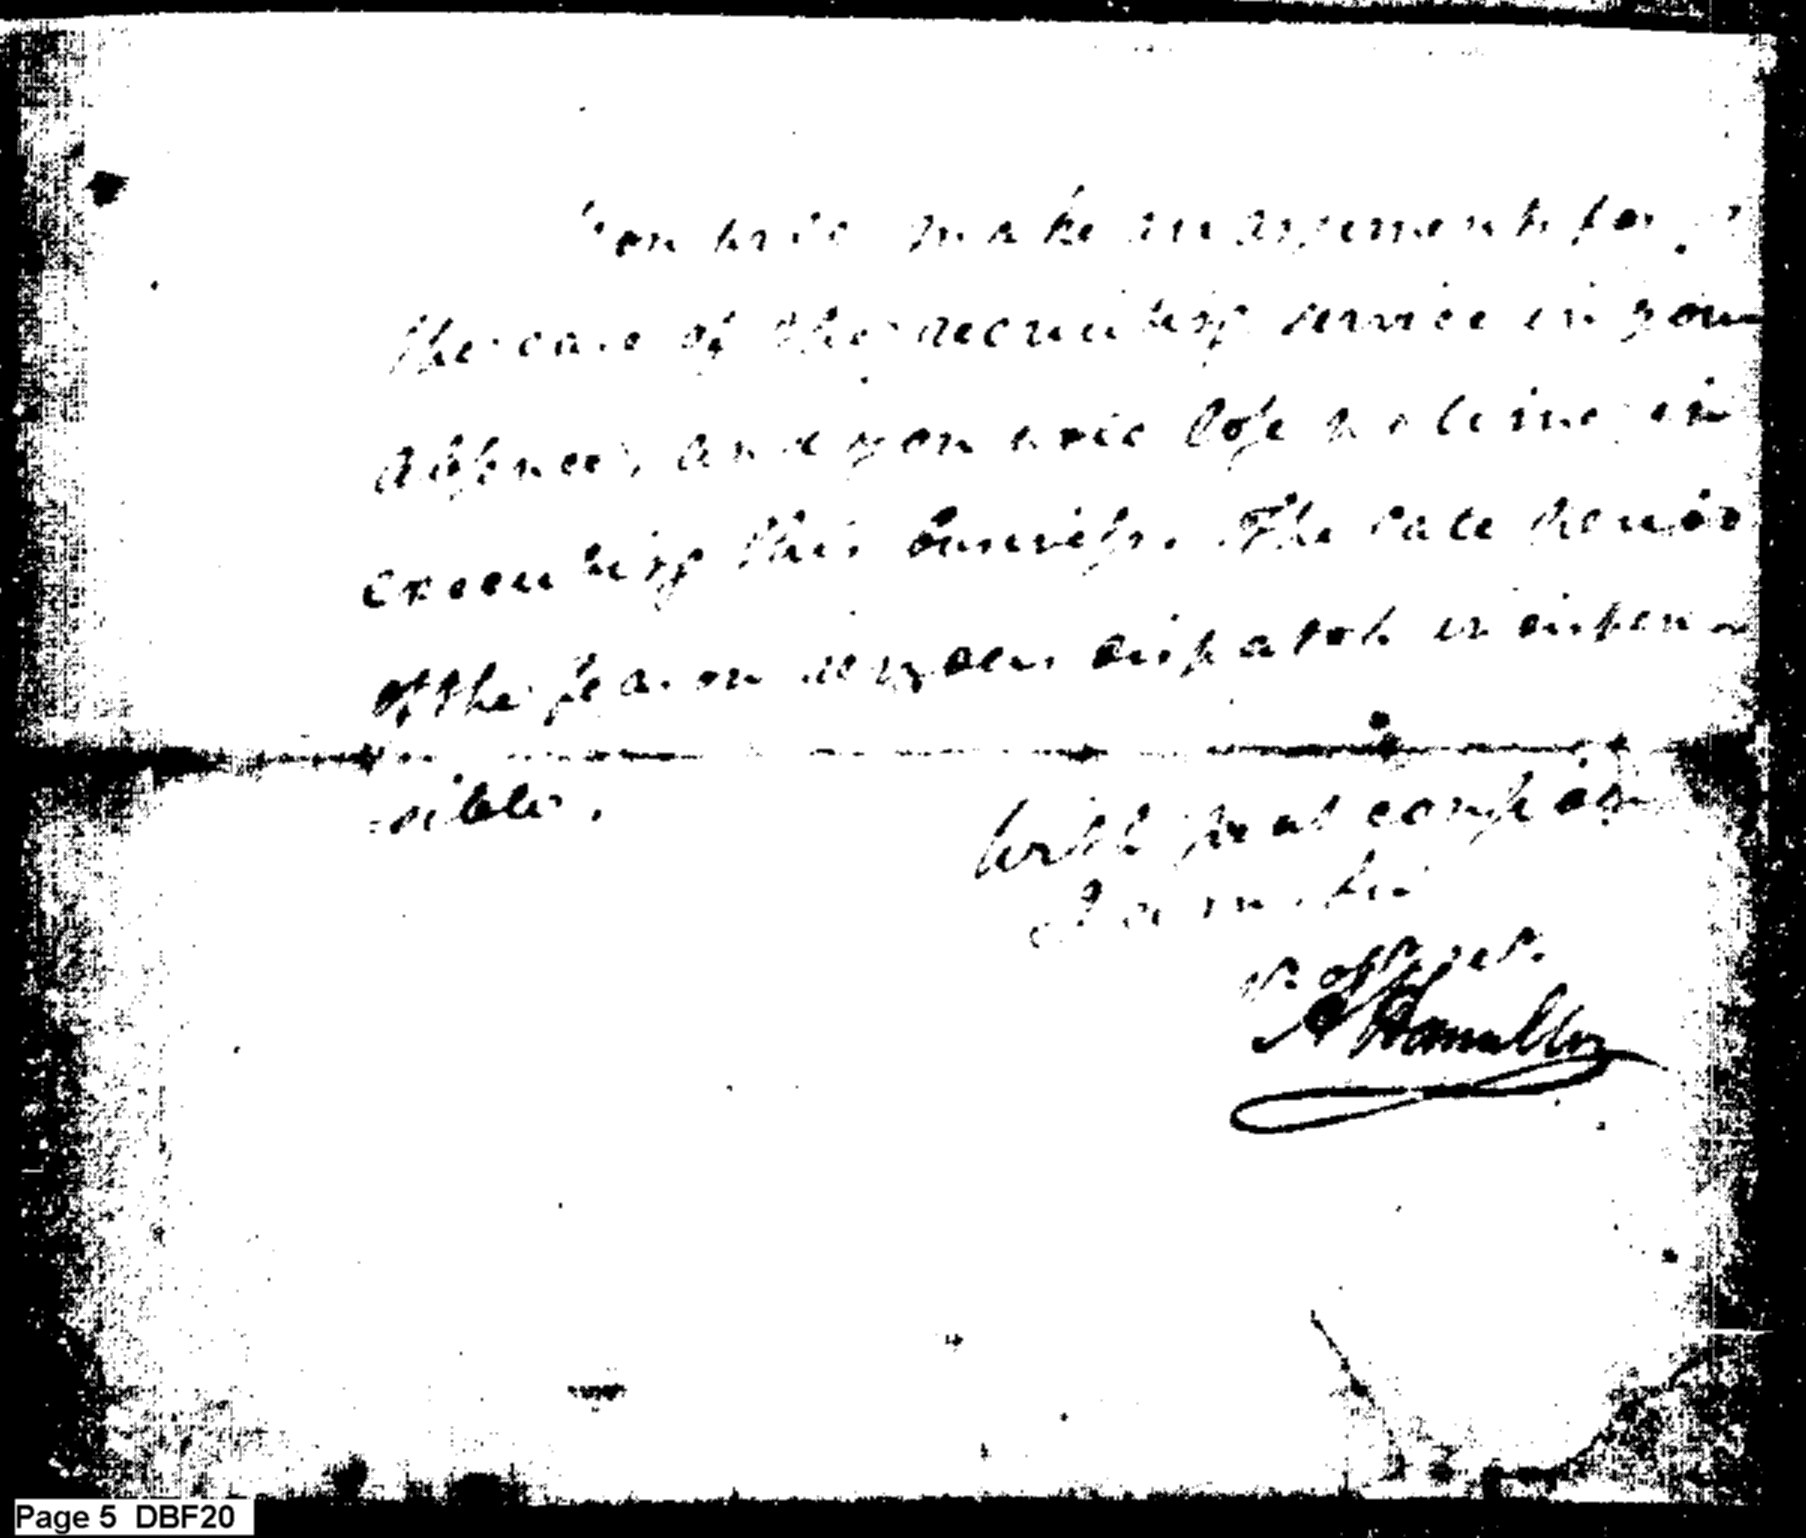 You will make arrangements for
the care of the recruiting service in your
absence, and you will lose no time in
executing this business. The late period
of the season renders dispatch indispen-
-sible.
With great consideration
I am, Sir
A Hamilton
Page 5 DBF20